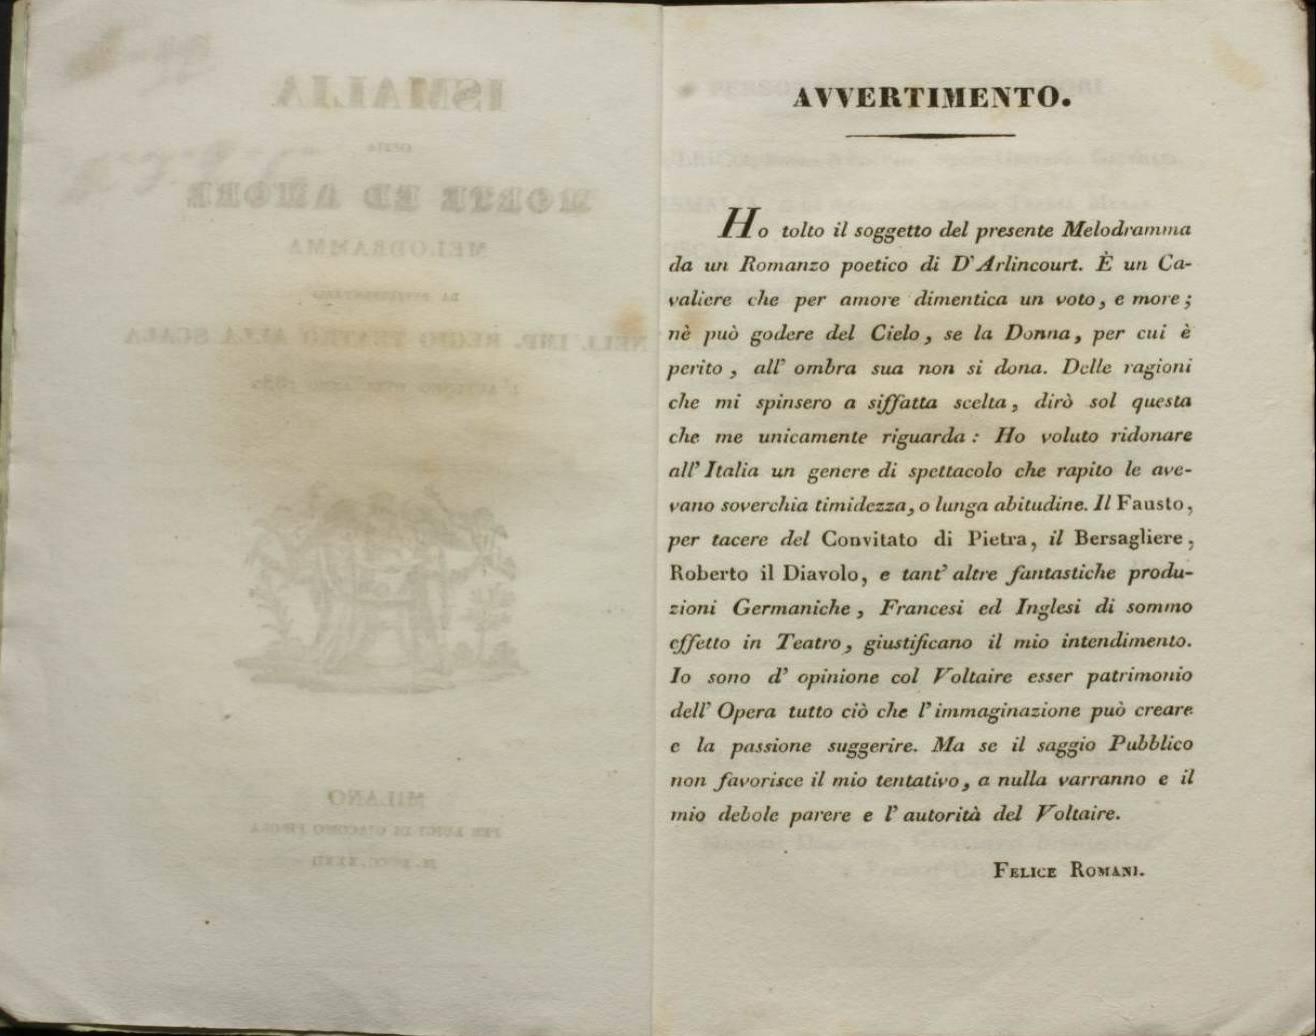 ISMALIA
OSSIA
MORTE ED AMORE
MELODRAMMA
NELL'IMP. REGIO TEATRO ALLA SCALA
MILANO
PER LUIGI DI GIACOMO PIROLA
AVVERTIMENTO.
Ho tolto il soggetto del presente Melodramma
da un Romanzo poetico di D'Arlincourt. È un Ca-
valiere che per amore dimentica un voto, e more;
nè può godere del Cielo, se la Donna, per cui è
perito, all' ombra sua non si dona. Delle ragioni
che mi spinsero a siffatta scelta, dirò sol questa
che me unicamente riguarda: Ho voluto ridonare
all' Italia un genere di spettacolo che rapito le ave-
vano soverchia timidezza, o lunga abitudine. Il Fausto,
per tacere del Convitato di Pietra, il Bersagliere,
Roberto il Diavolo, e tant' altre fantastiche produ-
zioni Germaniche, Francesi ed Inglesi di sommo
effetto in Teatro, giustificano il mio intendimento.
Io sono d' opinione col Voltaire esser patrimonio
dell' Opera tutto ciò che l' immaginazione può creare
e la passione suggerire. Ma se il saggio Pubblico
non favorisce il mio tentativo, a nulla varranno e il
mio debole parere e l' autorità del Voltaire.
FELICE ROMANI.